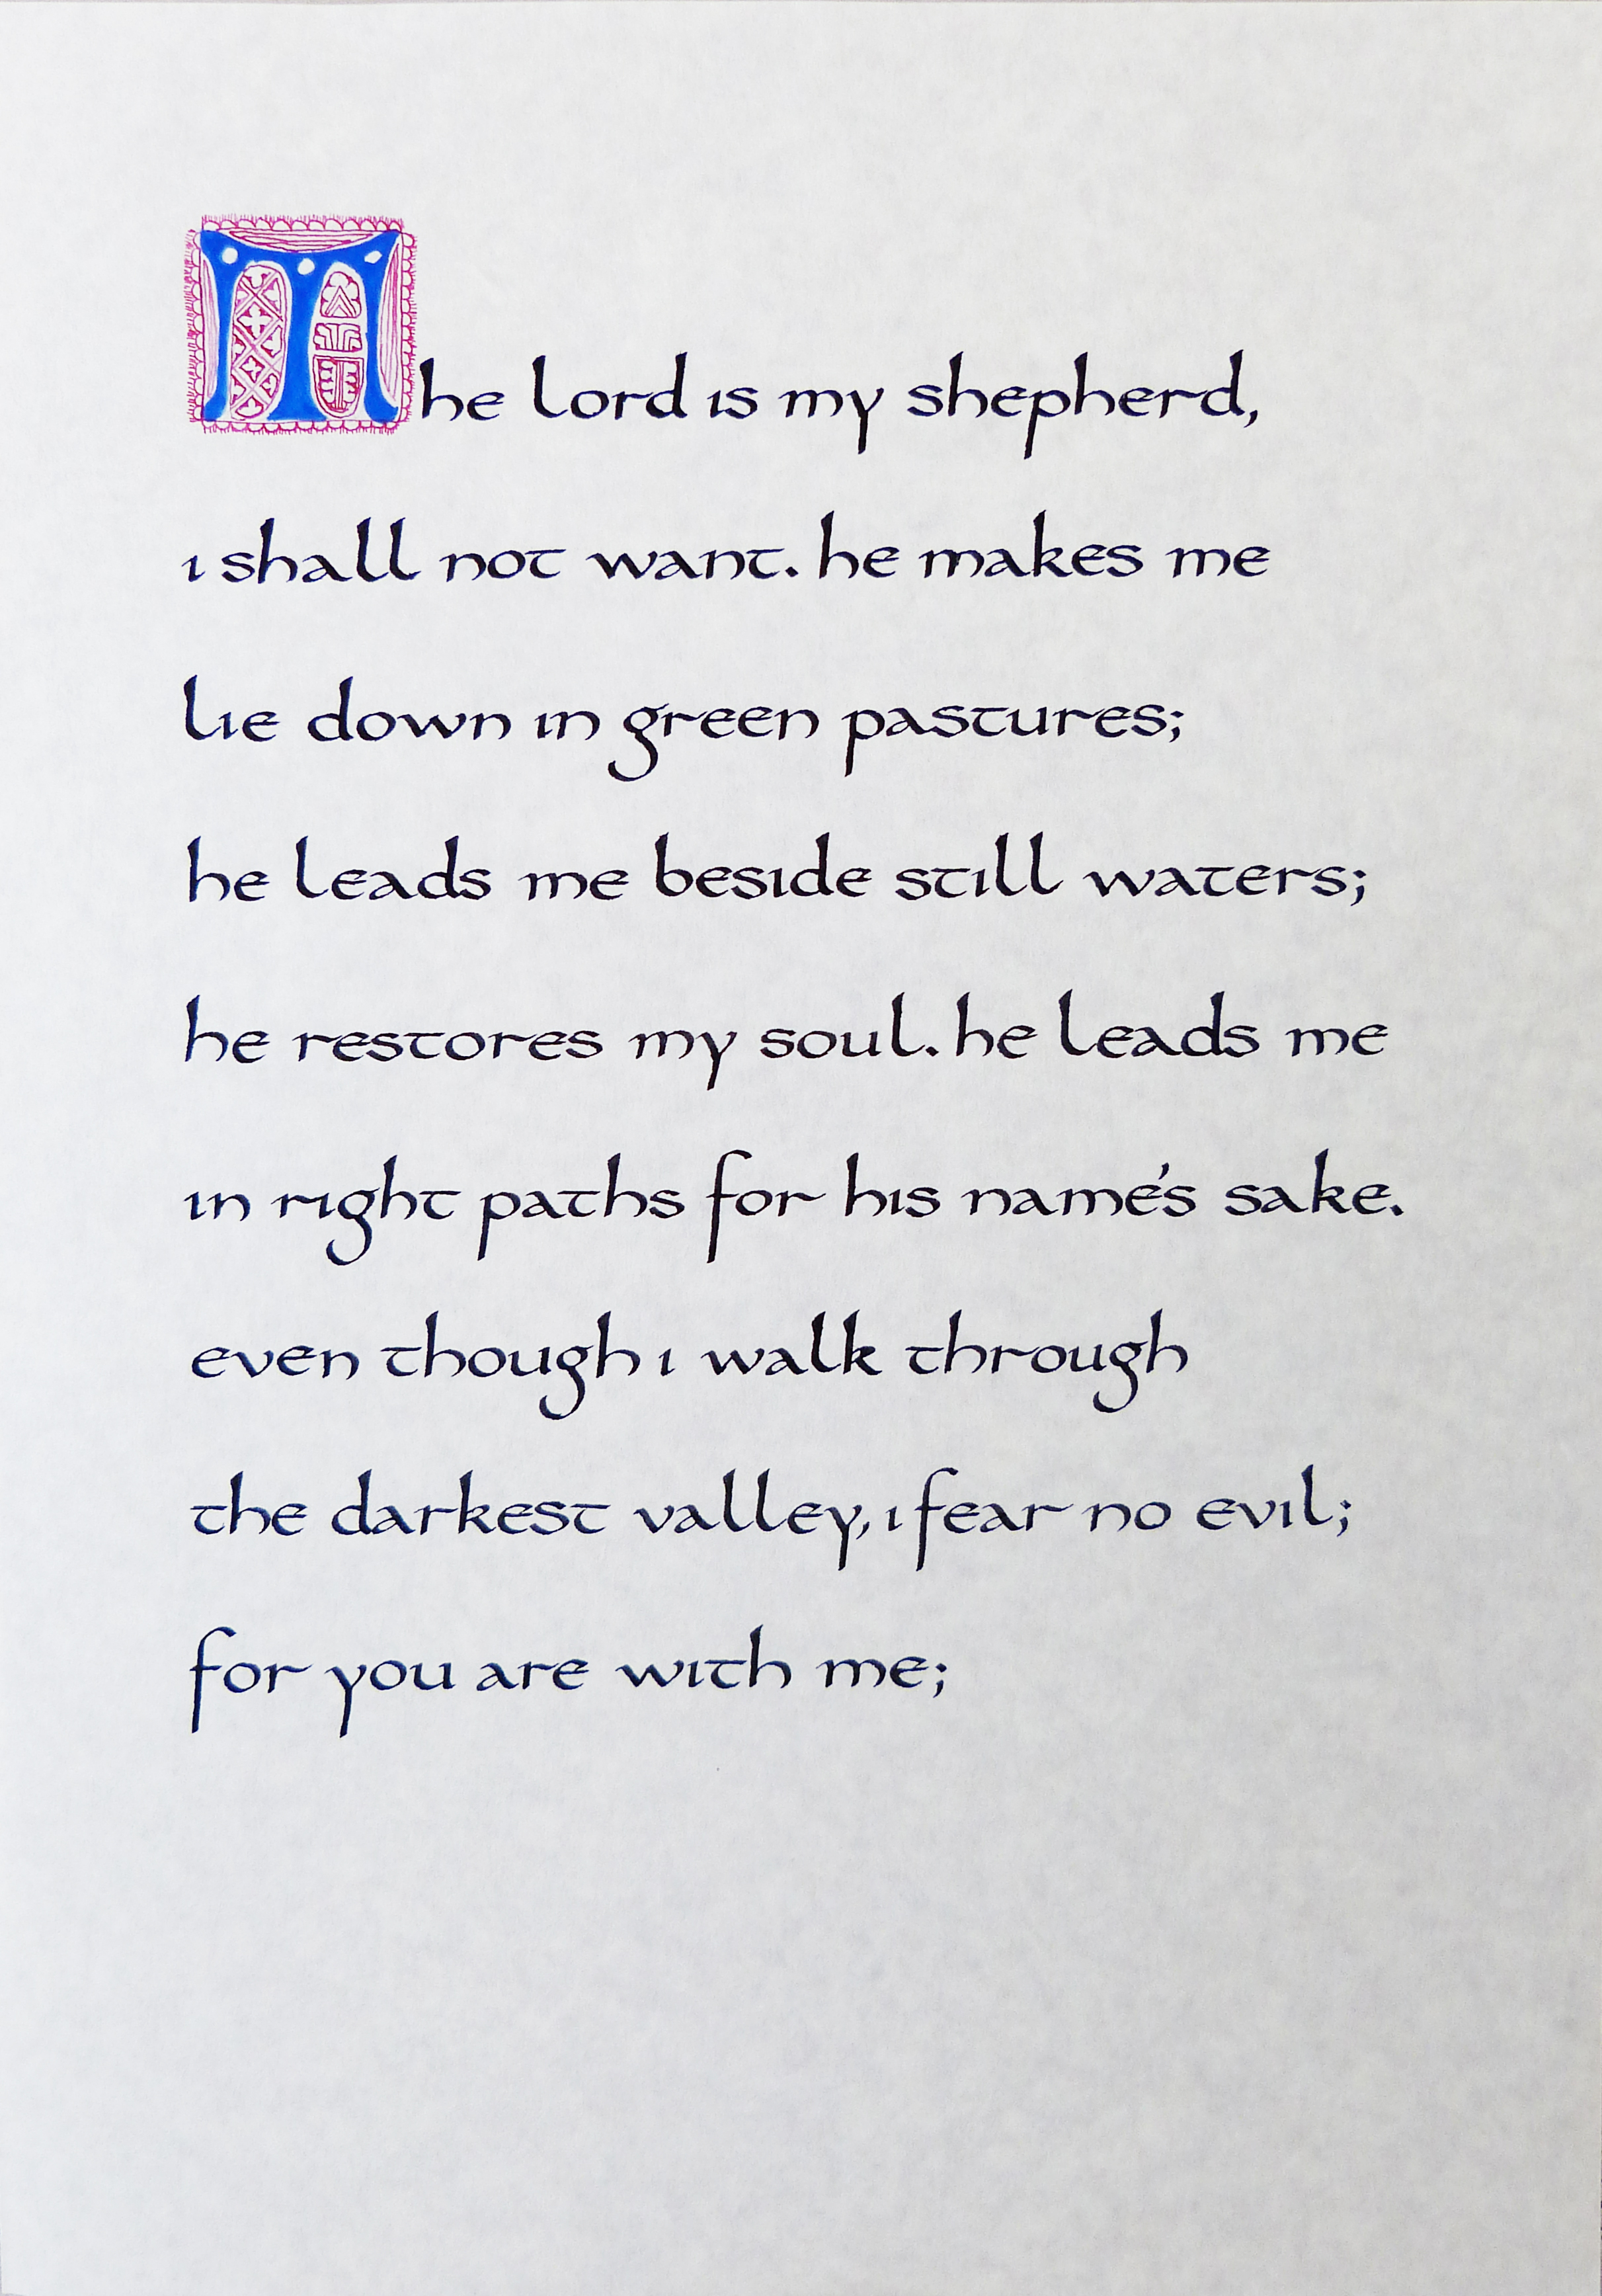 The lord is my shepherd,
i shall not want. he makes me
lie down in green pastures;
he leads me beside still waters;
he restores my soul. he leads me
in right paths for his name's sake.
even though i walk through
the darkest valley, i fear no evil;
for you are with me;